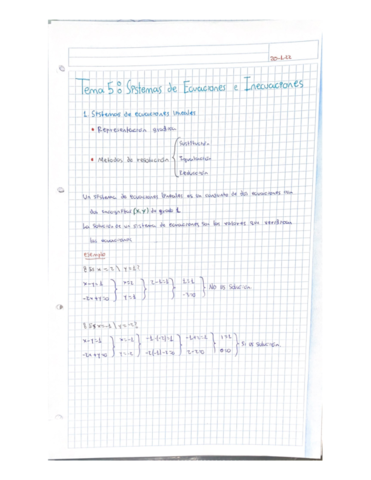 20-1-22
Tema 5: Sistemas de Ecuaciones e Inecuaciones
1. Sistemas de ecuaciones lineales
• Representación gráfica
Sustitución
• Métodos de resolución { Igualación
Reducción
Un sistema de ecuaciones lineales es un conjunto de dos ecuaciones con
dos incógnitas (x,y) de grado 1.
La solución de un sistema de ecuaciones son los valores que verifican
las ecuaciones.
Ejemplo
No es solución
Si es solución